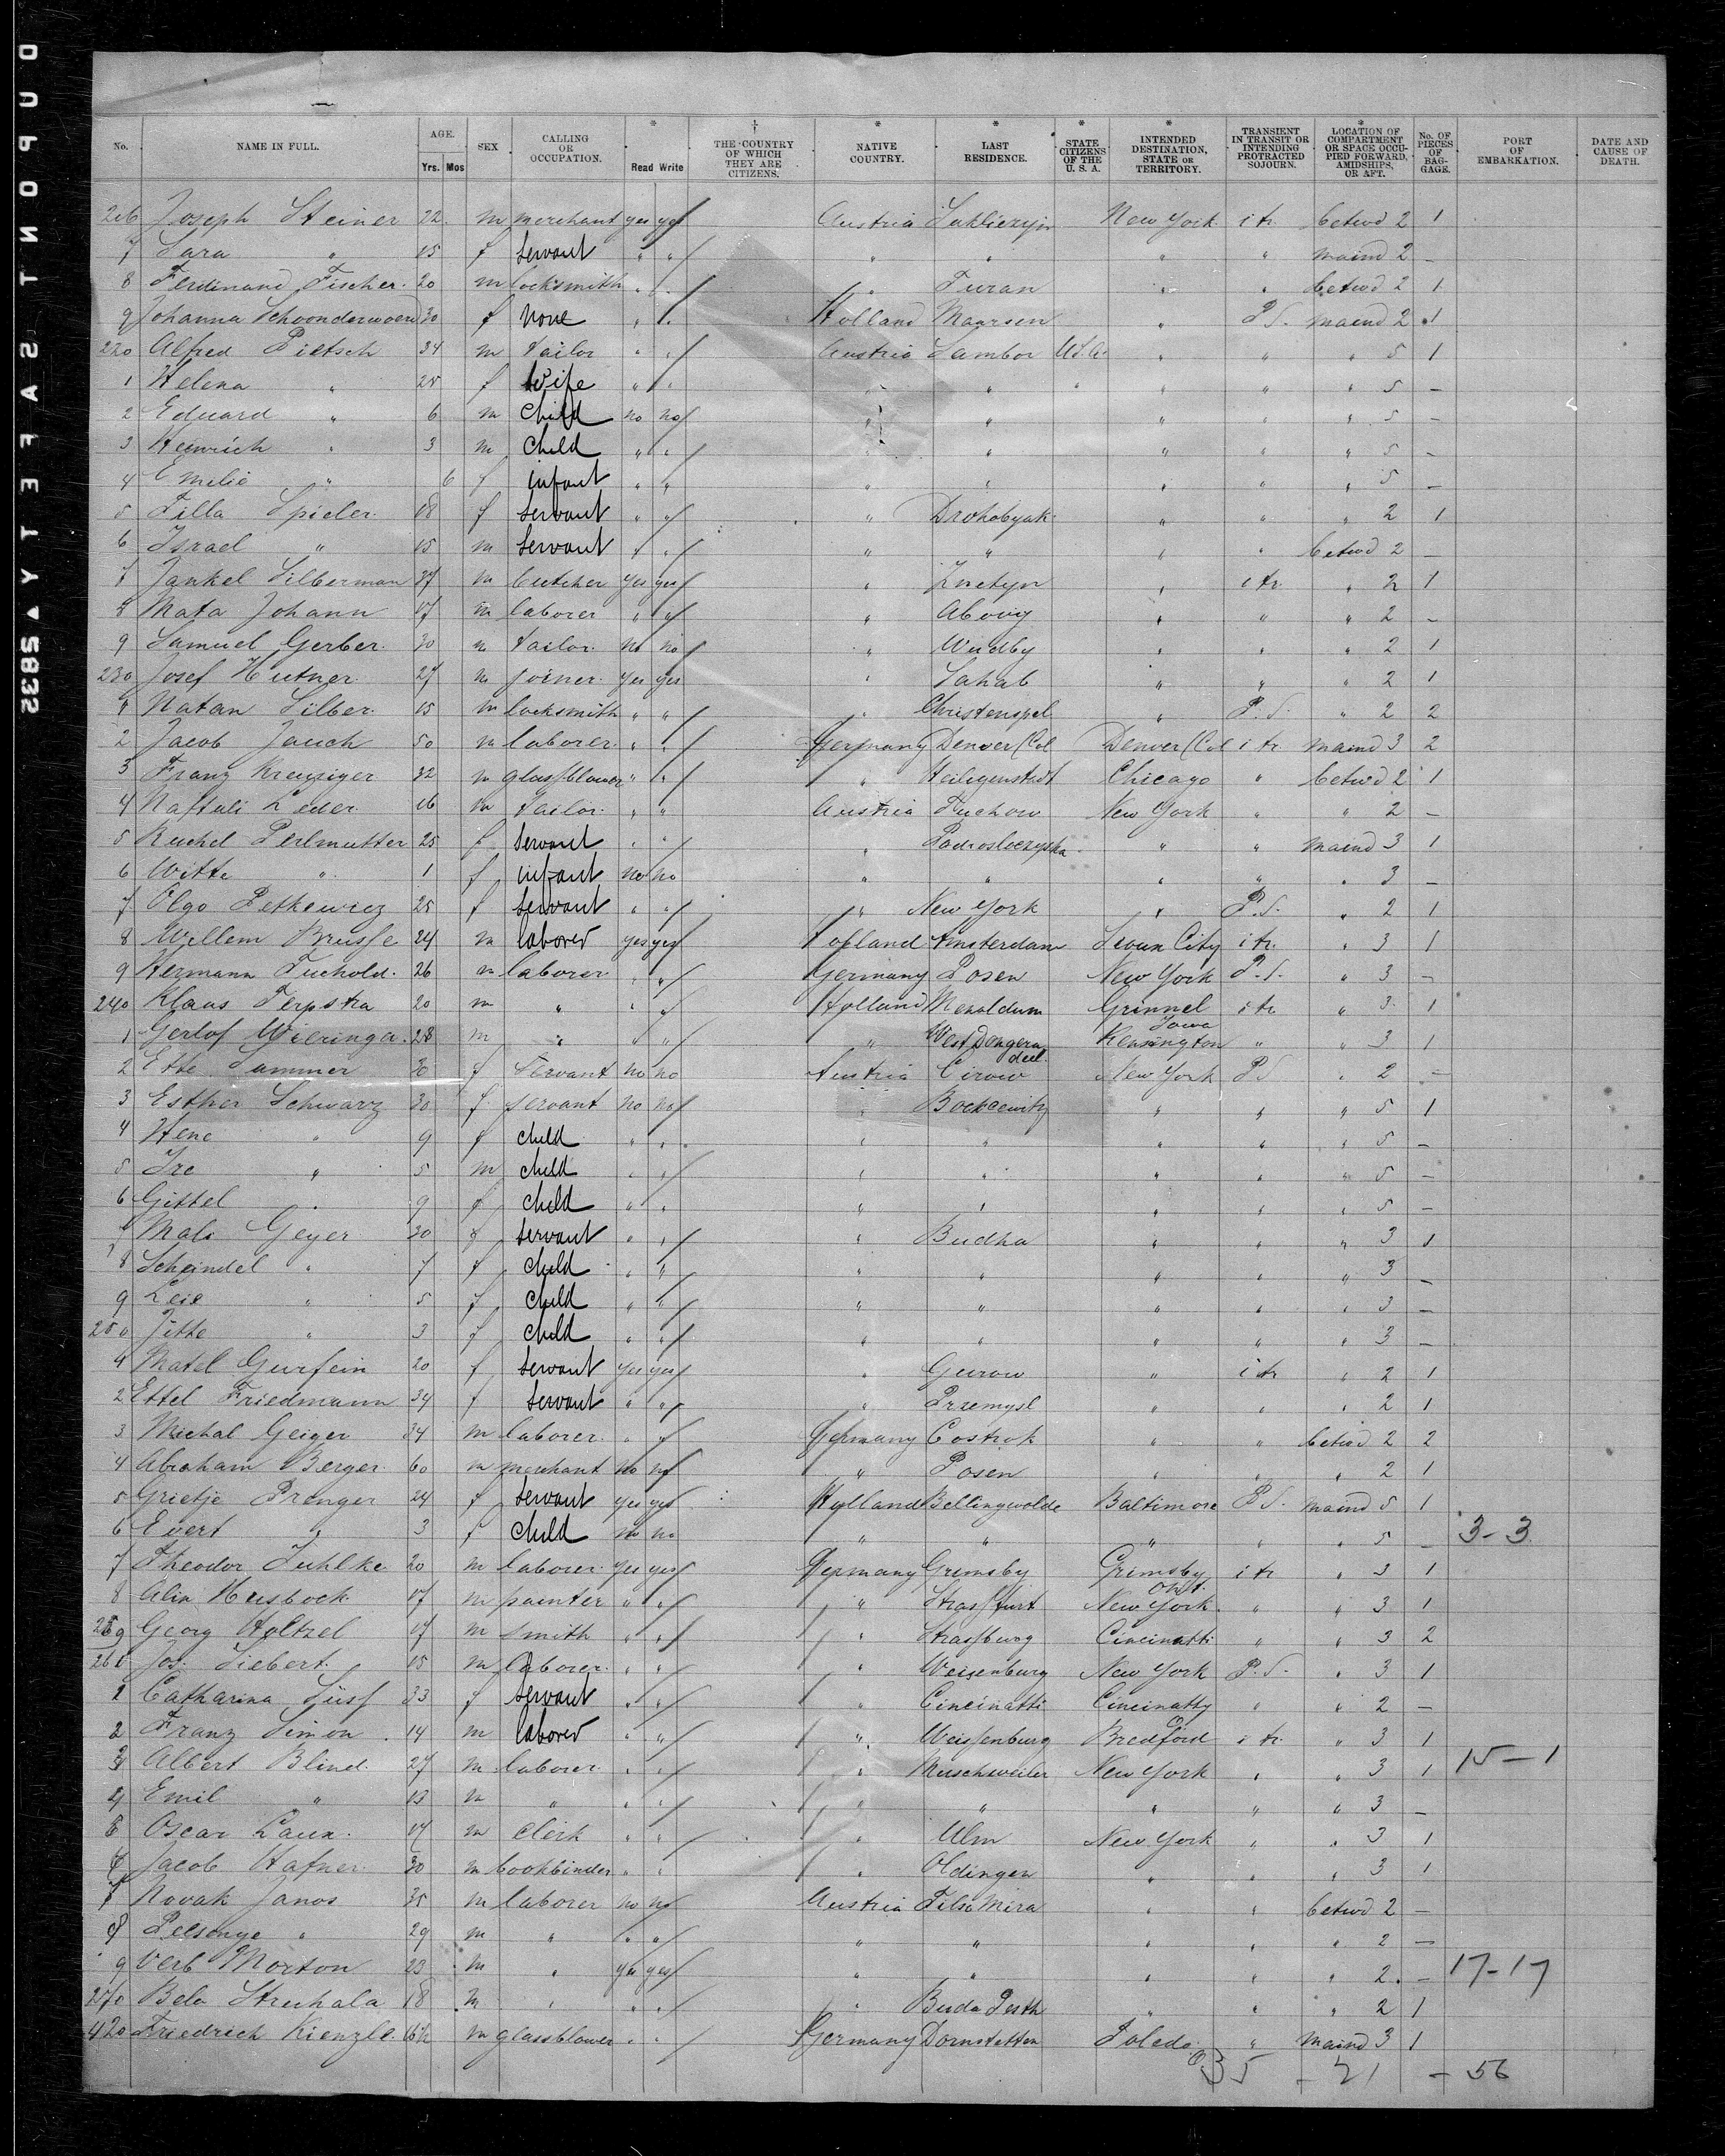 DUPONT SAFETY ▲ 5832
No. NAME IN FULL. AGE. Yrs. Mos SEX CALLING OR OCCUPATION. * Read Write † THE COUNTRY OF WHICH THEY ARE CITIZENS. * NATIVE COUNTRY. * LAST RESIDENCE. * STATE CITIZENS OF THE U. S. A. * INTENDED DESTINATION, STATE OR TERRITORY. TRANSIENT IN TRANSIT OR INTENDING PROTRACTED SOJOURN. * LOCATION OF COMPARTMENT OR SPACE OCCUPIED FORWARD, AMIDSHIPS, OR AFT. No. OF PIECES OF BAGGAGE. PORT OF EMBARKATION. DATE AND CAUSE OF DEATH.
216 Joseph Steiner 22 m merchant yes yes Austria New York i tr. betwd 2 1
7 Sara " 15 f servant " " " " " " maind 2 –
8 Ferdinand Fischer 20 m locksmith " " " Turan " " betwd 2 1
9 Johanna Schoonderwoerd 30 f none " " Holland Maarsen " P.S. maind 2 1
220 Alfred Pietsch 34 m tailor " " Austria Sambor U.S.A. " " " 5 1
1 Helena " 25 f wife " " " " " " " " 5 –
2 Eduard " 6 m child no no " " " " " 5 –
3 Heinrich " 3 m child " " " " " " " 5 –
4 Emilie " 6 f infant " " " " " " " 5 –
5 Tilla Spieler 18 f servant " " " Drohobyak " " " 2 1
6 Israel " 15 m servant " " " " " " betwd 2 –
7 Jankel Silberman 37 m butcher yes yes " " i tr. " 2 1
8 Mata Johann 17 m laborer " " " Abovy " " " 2 –
9 Samuel Gerber 30 m tailor no no " " " " 2 1
230 Josef Hutner 27 m joiner yes yes " Sahab " " " 2 1
1 Natan Silber 15 m locksmith " " " Christenspel " P.S. " 2 2
2 Jacob Jauch 50 m laborer " " Germany Denver/Col Denver/Col i tr. maind 3 2
3 Franz Kreuziger 32 m glassblower " " " Heiligenstadt Chicago " betwd 2 1
4 Naftuli Leder 16 m tailor " " Austria Tuchow New York " " 2 –
5 Ruchel Perlmutter 25 f servant " " " " " maind 3 1
6 Witte " 1 f infant no no " " " " " 3 –
7 Olgo Petkewicz 25 f servant " " " New York " P.S. " 2 1
8 Willem Brusse 24 m laborer yes yes Holland Amsterdam Sioux City i tr. " 3 1
9 Hermann Tuchold 26 m laborer " " Germany Posen New York P.S. " 3 –
240 Klaas Terpstra 20 m " " " Holland Menaldum Grinnel Iowa i tr " 3 1
1 Gerlof Wieringa 28 m " " " " West Dongera deel Kensington " " 3 1
2 Ette Summer 30 f servant no no Austria Cirow New York P.S. " 2 –
3 Esther Schwarz 30 f servant no no " " " " 5 1
4 Hene " 9 f child " " " " " " " 5 –
5 Ire " 5 m child " " " " " " " 5 –
6 Gittel " 9 f child " " " " " " " 5 –
7 Mali Geyer 30 f servant " " " Budha " " " 3 1
8 Scheindel " 7 f child " " " " " " " 3 –
9 Leie " 5 f child " " " " " " " 3 –
250 Jitte " 3 f child " " " " " " " 3 –
1 Matel Gurfein 20 f servant yes yes " Gurow " i tr " 2 1
2 Ettel Friedmann 34 f servant " " " Przemysl " " " 2 1
3 Michal Geiger 34 m laborer " " Germany Costrok " " betwd 2 2
4 Abraham Berger 60 m merchant no no " Posen " " " 2 1
5 Grietje Prenger 24 f servant yes yes Holland Bellingwolde Baltimore P.S. maind 5 1
6 Evert " 3 f child no no " " " " 5 – 3-3
7 Theodor Juhlke 20 m laborer yes yes Germany Grimsby Grimsby Ont. i tr " 3 1
8 Hersbock 17 m painter " " " Strassfurt New York " " 3 1
259 Georg Holtzel 17 m smith " " " Strassburg Cincinatti " " 3 2
260 Jos. Siebert 15 m laborer " " " Weisenburg New York P.S. " 3 1
1 Catharina Süss 33 f servant " " " Cincinatti Cincinatty O " " 2 –
2 Franz Simon 14 m laborer " " " Weissenburg Bredford i tr. " 3 1
3 Albert Blind 27 m laborer " " " Muschweiler New York " " 3 1 15-1
4 Emil " 13 m " " " " " " " " 3 –
5 Oscar Laux 17 m clerk " " " Ulm New York " " 3 1
6 Jacob Hafner 30 m bookbinder " " " Oldingen " " 3 1
7 Novak Janos 35 m laborer no no Austria Filso Mira " " betwd 2 –
8 Pelsenye " 29 m " " " " " " " " 2 –
9 Verb Morton 23 m " yes yes " " " " " 2 – 17-17
270 Bela Struhala 18 m " " " " Buda Pesth " " " 2 1
420 Friedrich Kienzle 16½ m glassblower " " Germany Dornstetten Toledo O. " maind 3 1
35 – 21 – 56